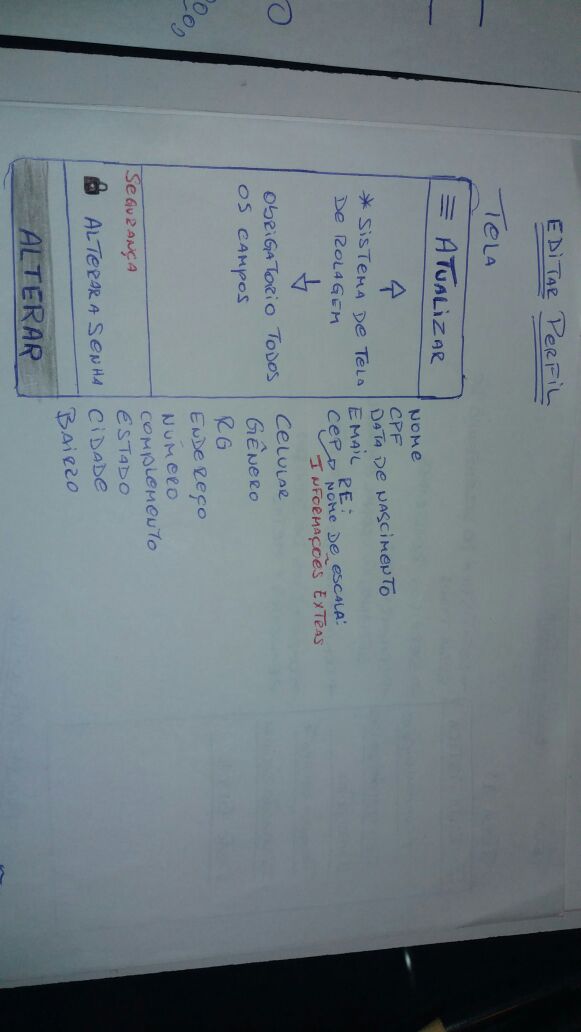 EDITAR PERFIL
TELA
ATUALIZAR
* SISTEMA DE TELA
DE ROLAGEM
OBRIGATORIO TODOS
OS CAMPOS
SEGURANÇA
ALTERAR A SENHA
ALTERAR
NOME
CPF
DATA DE NASCIMENTO
EMAIL
RE:
CEP → NOME DE ESCALA:
INFORMAÇÕES EXTRAS
CELULAR
GÊNERO
RG
ENDEREÇO
NÚMERO
COMPLEMENTO
ESTADO
CIDADE
BAIRRO